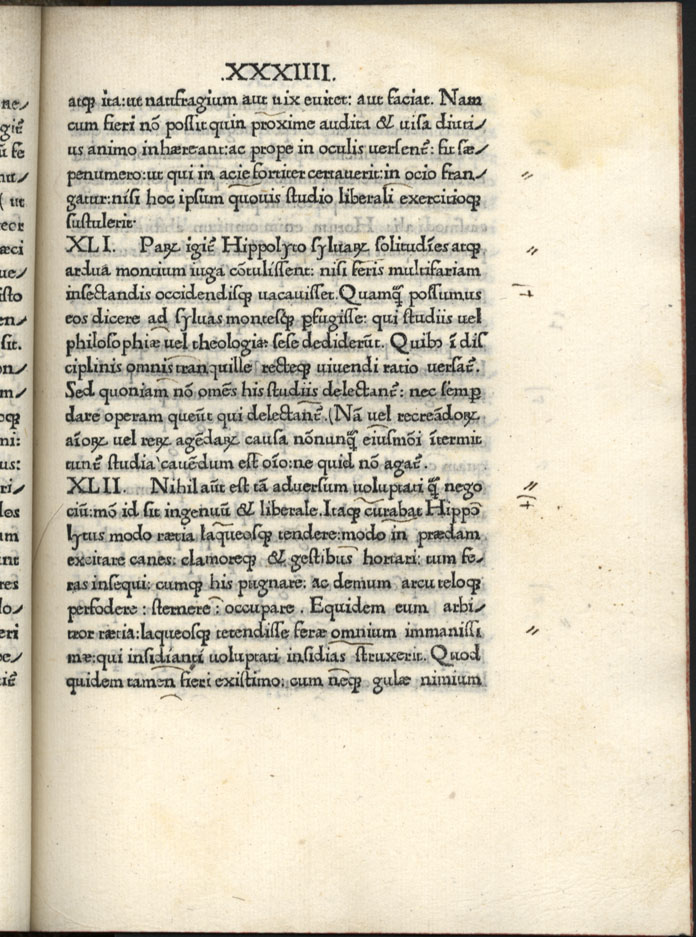 .XXXIIII.
atqꝫ ita:ut naufragium aut uix euitet: aut faciat. Nam
cum fieri nõ possit quin proxime audita & uisa diuti/
us animo inhæreant:ac prope in oculis uersenť: fit sæ/
penumero:ut qui in acie fortiter certauerit:in ocio fran/
gatur:nisi hoc ipsum quouis studio liberali exercitioqꝫ
sustulerit·
XLI. Paꝝ igiť Hippolyto syluaꝝ solitudĩes atqꝫ
ardua montium iuga cõtulissent: nisi feris multifariam
insectandis occidendisqꝫ uacauisset.Quamq̃ possumus
eos dicere ad syluas montesqꝫ ꝑfugisse: qui studiis uel
philosophiæ uel theologiæ sese dediderũt. Quibꝰ ĩ dis
ciplinis omnis tranquille recteqꝫ uiuendi ratio uersať.
Sed quoniam nõ omẽs his studiis delectanť: nec semꝑ
dare operam queũt qui delectanť.(Nã uel recreãdoꝝ
aĩoꝝ uel reꝝ agẽdaꝝ causa nõnunq̃ eiusmõi ĩtermit
tunť studia)cauẽdum est oĩo:ne quid nõ agať.
XLII. Nihil aũt est tã aduersum uoluptati q̃ nego
ciũ:mõ id sit ingenuũ & liberale.Itaqꝫ curabat Hippo
lytus modo rætia laqueosqꝫ tendere:modo in prædam
excitare canes: clamoreqꝫ & gestibus hortari: tum fe/
ras insequi: cumqꝫ his pugnare: ac demum arcu teloqꝫ
perfodere : sternere : occupare . Equidem eum arbi/
tror rætia:laqueosqꝫ tetendisse feræ omnium immanissi
mæ:qui insidianti uoluptati insidias struxerit. Quod
quidem tamen fieri existimo: cum neqꝫ gulæ nimium